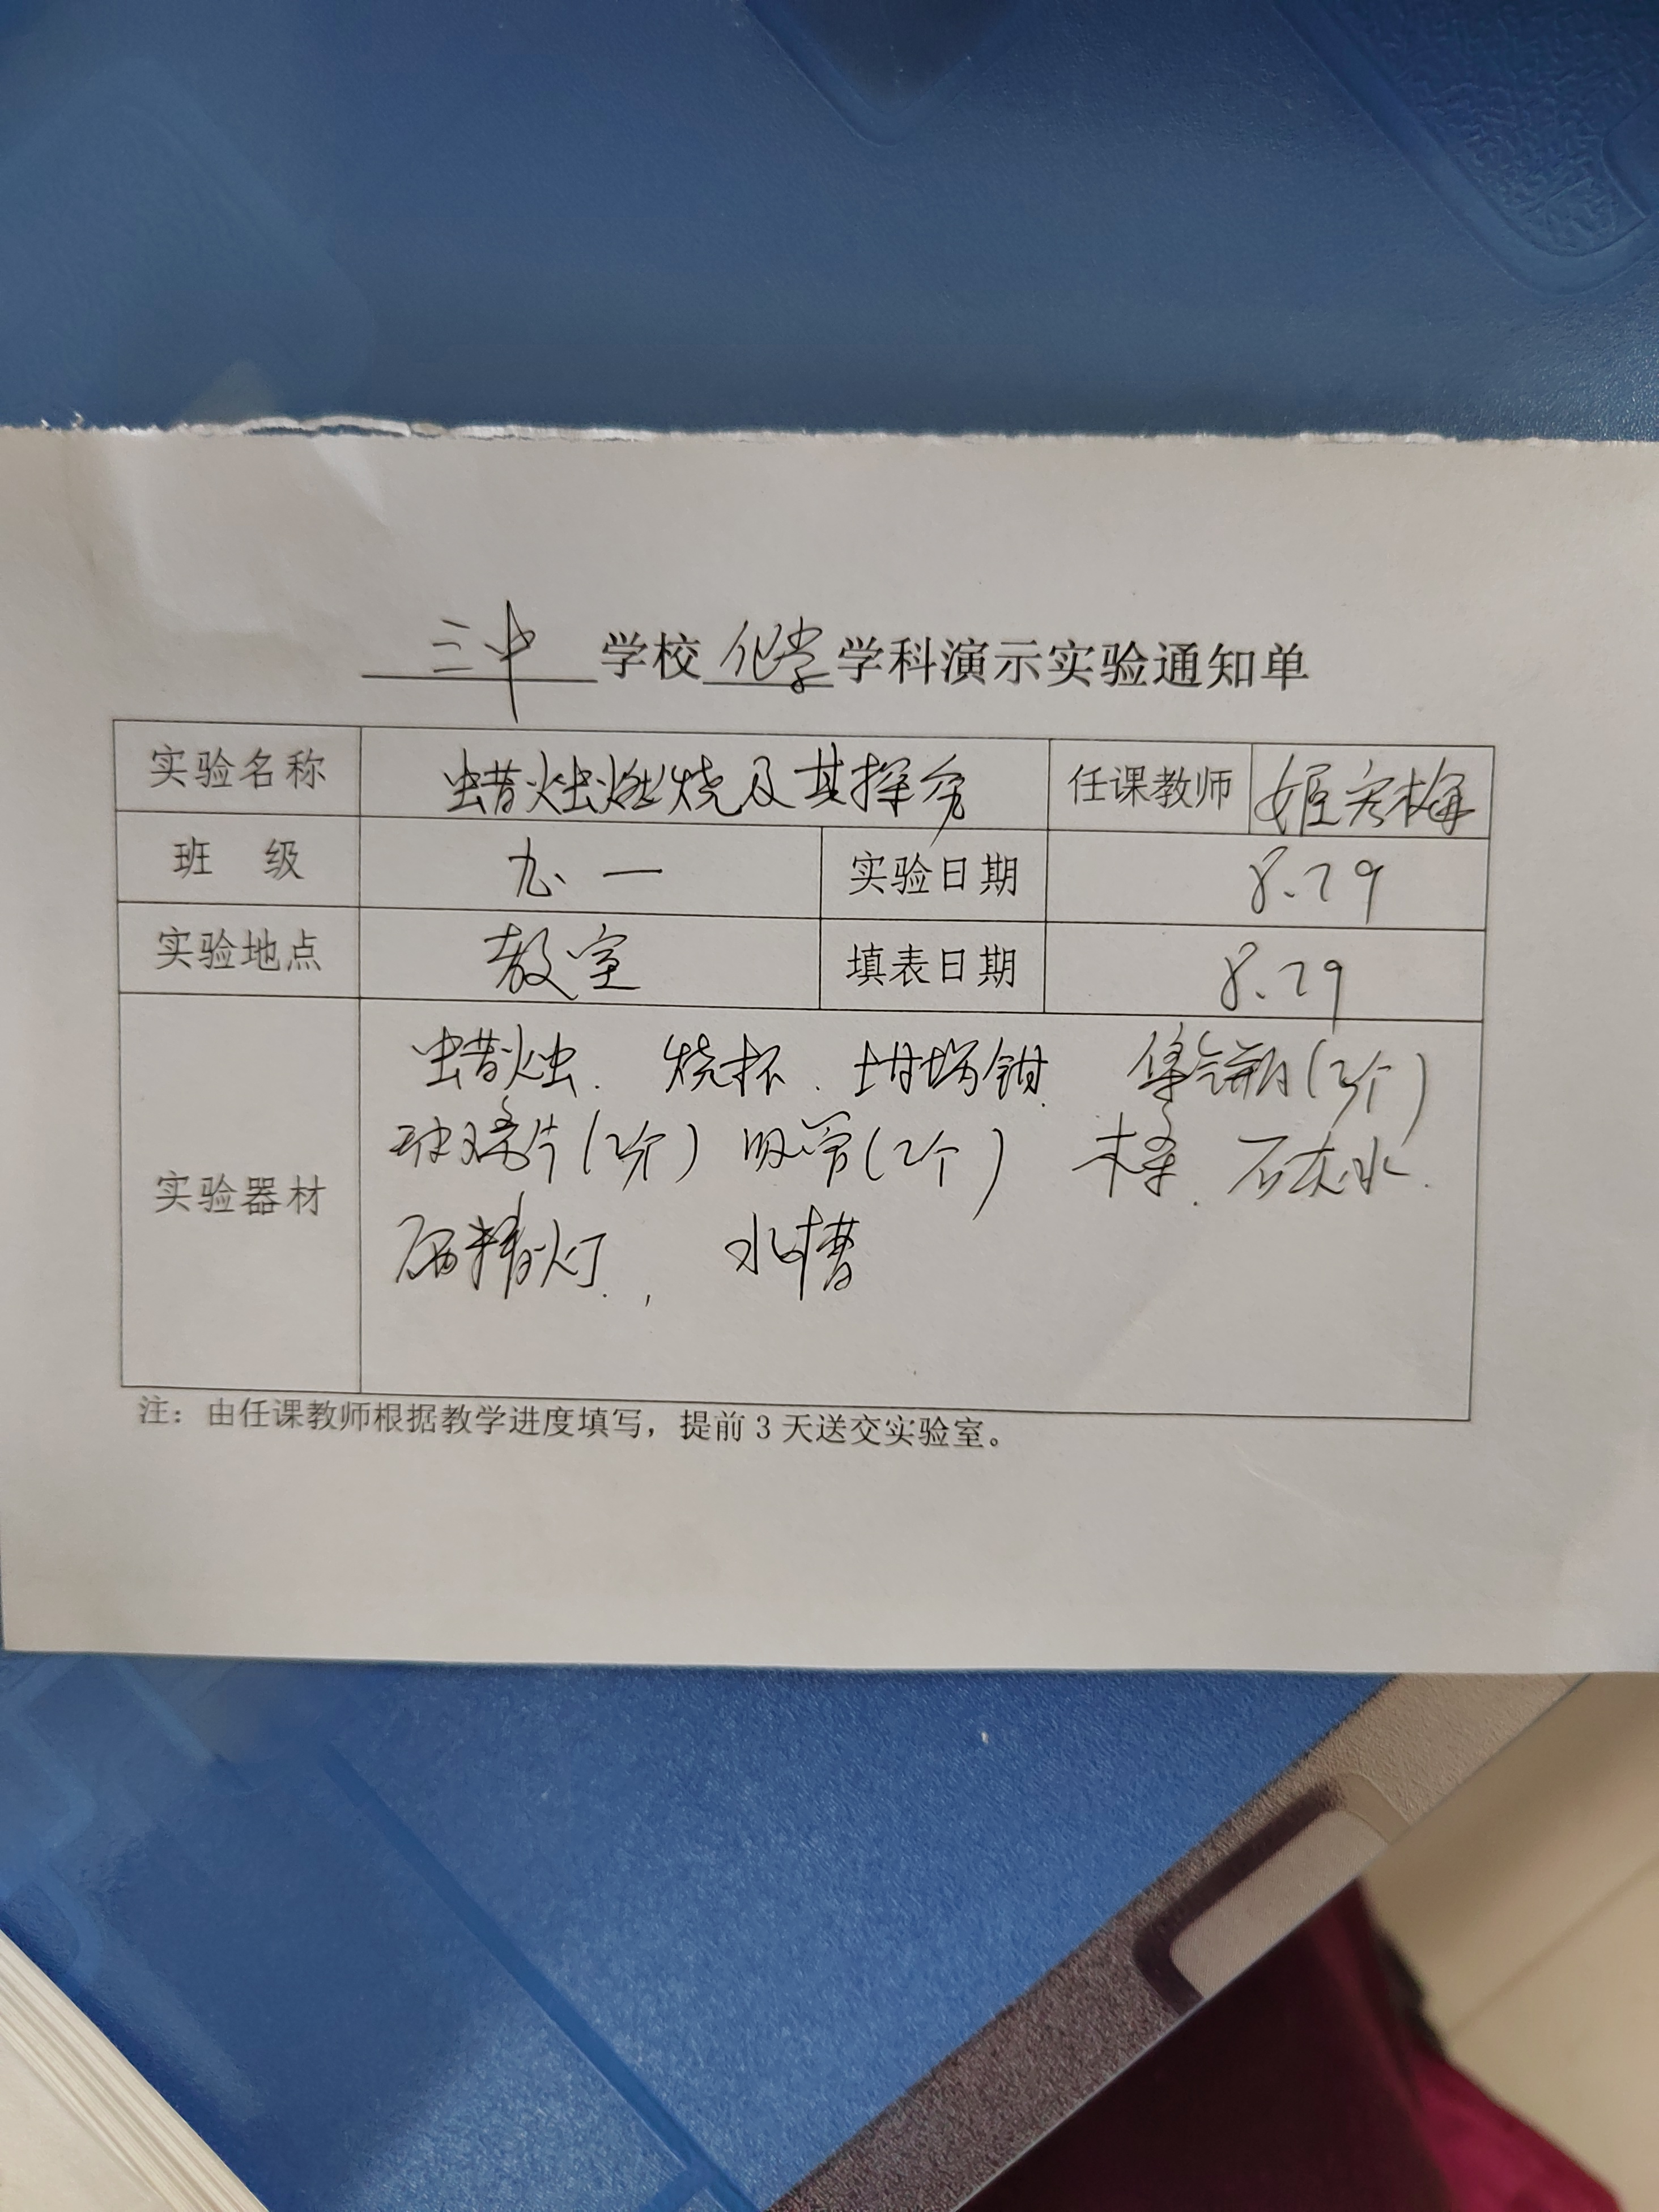 三中 学校 化学 学科演示实验通知单
实验名称 蜡烛燃烧及其探究 任课教师 姬宏梅
班 级 九.一 实验日期 8.29
实验地点 教室 填表日期 8.29
实验器材 蜡烛. 烧杯. 坩埚钳. 集气瓶(2个)
玻璃片(2个) 吸管(2个) 木条. 石灰水.
酒精灯. , 水槽
注：由任课教师根据教学进度填写，提前 3 天送交实验室。